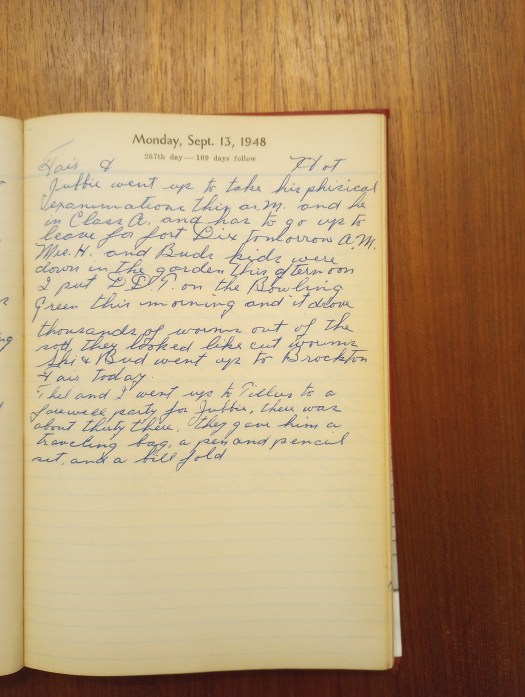 Monday, Sept. 13, 1948
257th day—109 days follow
Fair & Hot
Jubbie went up to take his phisical
examinations this a.M. and he
in Class A. and has to go up to
leave for fort Dix tomorrow A.M.
Mrs. H. and Buds kids were
down in the garden this afternoon
I put D.D.T. on the Bowling
Green this morning and it drove
thousands of worms out of the
sod, they looked like cut worms
& Bud went up to Brockton
Fair today.
Thel and I went up to Tillus to a
farewell party for Jubbie, there was
about thirty there. they gave him a
traveling bag, a pen and pencil
set, and a bill fold